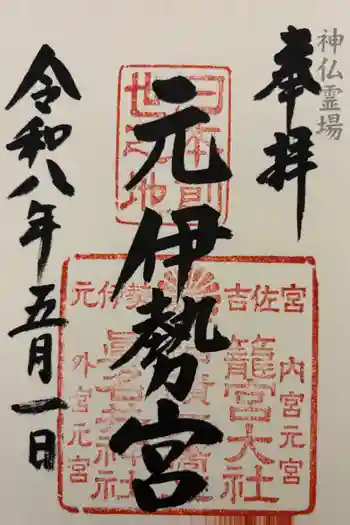 神仏霊場
奉拝
元伊勢宮
令和八年五月一日
元伊勢
吉佐宮
内宮元宮
籠宮大社
外宮元宮